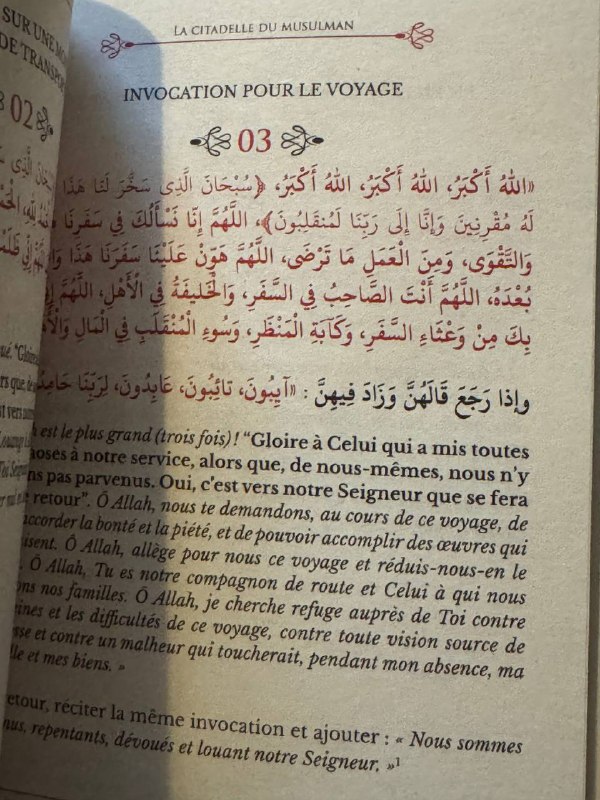 SUR UNE
DE TRANSPO
02
LA CITADELLE DU MUSULMAN
INVOCATION POUR LE VOYAGE
03
«اللهُ أَكْبَرُ، اللهُ أَكْبَرُ، اللهُ أَكْبَرُ، ﴿سُبْحَانَ الَّذِي سَخَّرَ لَنَا هَذَا
لَهُ مُقْرِنِينَ وَإِنَّا إِلَى رَبِّنَا لَمُنْقَلِبُونَ﴾، اللَّهُمَّ إِنَّا نَسْأَلُكَ فِي سَفَرِنَا
وَالتَّقْوَى، وَمِنَ الْعَمَلِ مَا تَرْضَى، اللَّهُمَّ هَوِّنْ عَلَيْنَا سَفَرَنَا هَذَا
بُعْدَهُ، اللَّهُمَّ أَنْتَ الصَّاحِبُ فِي السَّفَرِ، وَالْخَلِيفَةُ فِي الْأَهْلِ، اللَّهُمَّ
بِكَ مِنْ وَعْثَاءِ السَّفَرِ، وَكَآبَةِ الْمَنْظَرِ، وَسُوءِ الْمُنْقَلَبِ فِي الْمَالِ
وإذا رَجَعَ قَالَهُنَّ وَزَادَ فِيهِنَّ : «آيِبُونَ، تائِبُونَ، عَابِدُونَ، لِرَبِّنَا
est le plus grand (trois fois) ! “Gloire à Celui qui a mis toutes
choses à notre service, alors que, de nous-mêmes, nous n’y
ns pas parvenus. Oui, c’est vers notre Seigneur que se fera
retour”. Ô Allah, nous te demandons, au cours de ce voyage, de
accorder la bonté et la piété, et de pouvoir accomplir des œuvres qui
isent. Ô Allah, allège pour nous ce voyage et réduis-nous-en le
. Ô Allah, Tu es notre compagnon de route et Celui à qui nous
ons nos familles. Ô Allah, je cherche refuge auprès de Toi contre
eines et les difficultés de ce voyage, contre toute vision source de
sse et contre un malheur qui toucherait, pendant mon absence, ma
lle et mes biens. »
retour, réciter la même invocation et ajouter : « Nous sommes
nus, repentants, dévoués et louant notre Seigneur. »¹